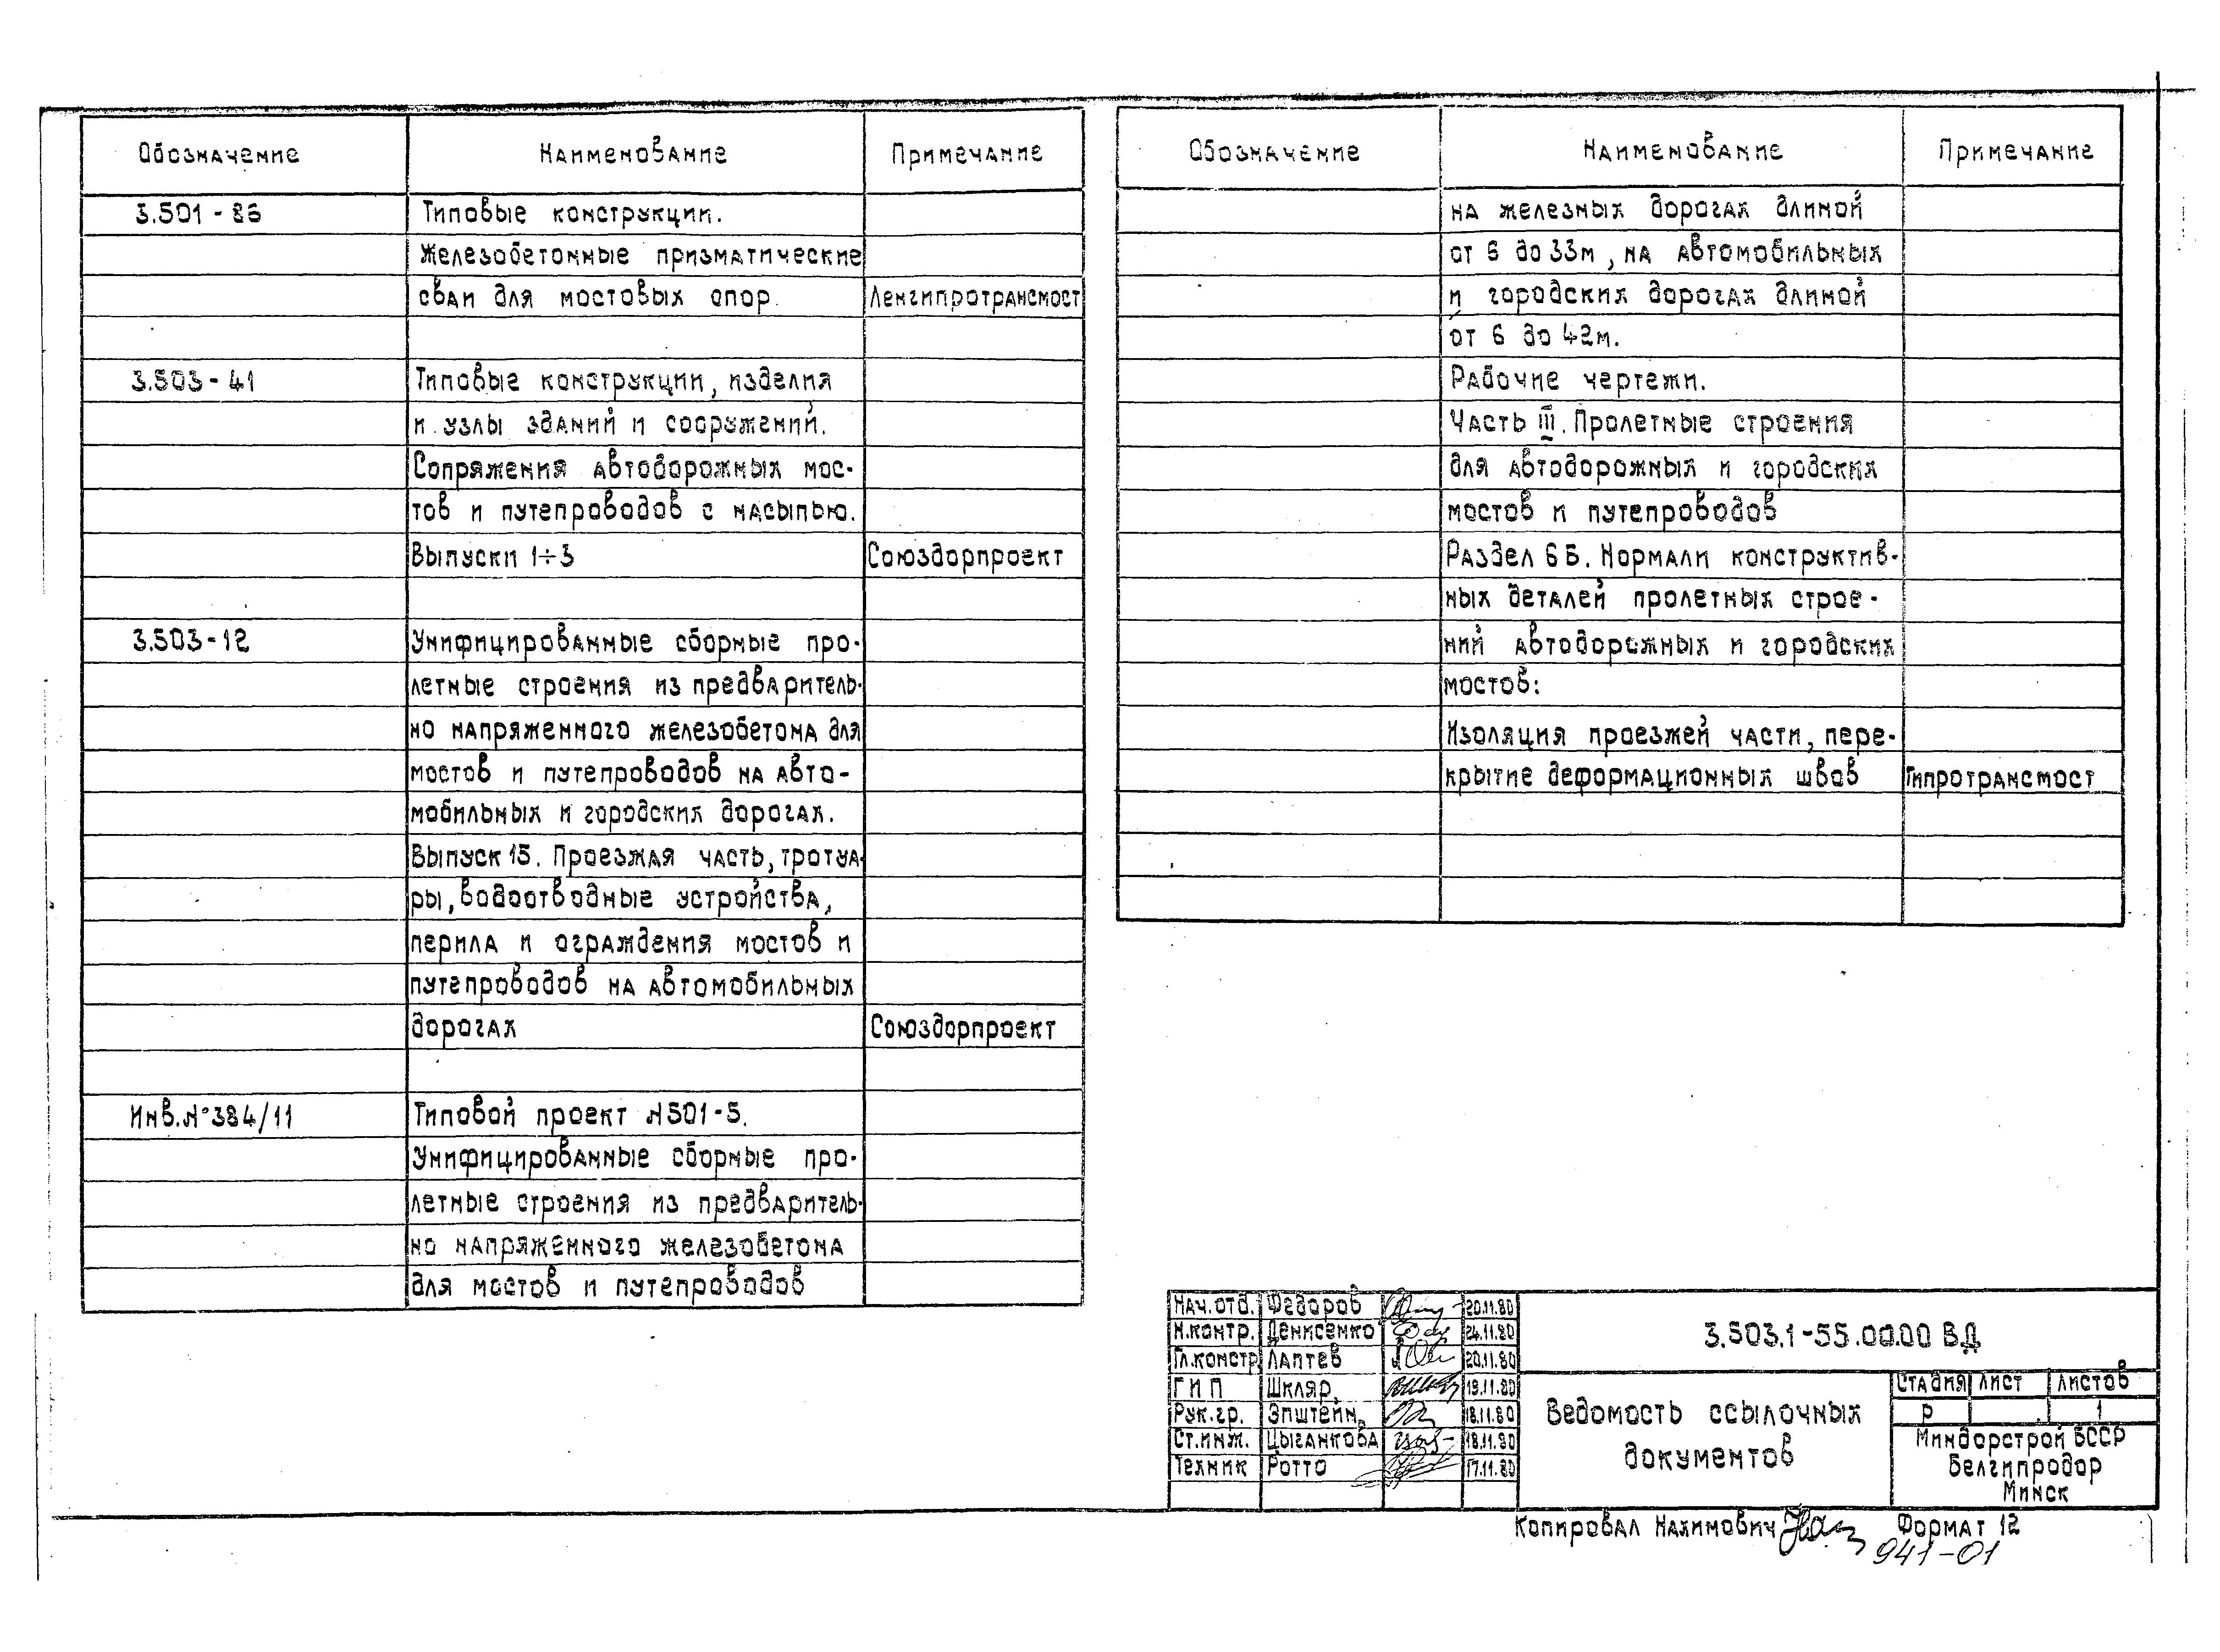 Обозначение Наименование Примечание
3.501-86 Типовые конструкции.
Железобетонные призматические
сваи для мостовых опор. Ленгипротрансмост
3.503-41 Типовые конструкции, изделия
и узлы зданий и сооружений.
Сопряжения автодорожных мос-
тов и путепроводов с насыпью.
Выпуски 1÷3 Союздорпроект
3.503-12 Унифицированные сборные про-
летные строения из предваритель-
но напряженного железобетона для
мостов и путепроводов на авто-
мобильных и городских дорогах.
Выпуск 15. Проезжая часть, тротуа-
ры, водоотводные устройства,
перила и ограждения мостов и
путепроводов на автомобильных
дорогах Союздорпроект
Инв.№384/11 Типовой проект №501-5.
Унифицированные сборные про-
летные строения из предваритель-
но напряженного железобетона
для мостов и путепроводов
Обозначение Наименование Примечание
на железных дорогах длиной
от 6 до 33м, на автомобильных
и городских дорогах длиной
от 6 до 42м.
Рабочие чертежи.
Часть III. Пролетные строения
для автодорожных и городских
мостов и путепроводов
Раздел 6Б. Нормали конструктив-
ных деталей пролетных строе-
ний автодорожных и городских
мостов:
Изоляция проезжей части, пере-
крытие деформационных швов Гипротрансмост
Нач.отд. Федоров 20.11.80
Н.контр. Денисенко 24.11.80
Гл.констр Лаптев 20.11.80
ГИП Шкляр 19.11.80
Рук.гр. Эпштейн 18.11.80
Ст.инж. Цыганкова 18.11.80
Техник Ротто 17.11.80
3.503.1-55.00.00 ВД
Ведомость ссылочных
документов
Стадия Лист Листов
Р 1
Миндорстрой БССР
Белгипродор
Минск
Копировал Нахимович Формат 12
941-01